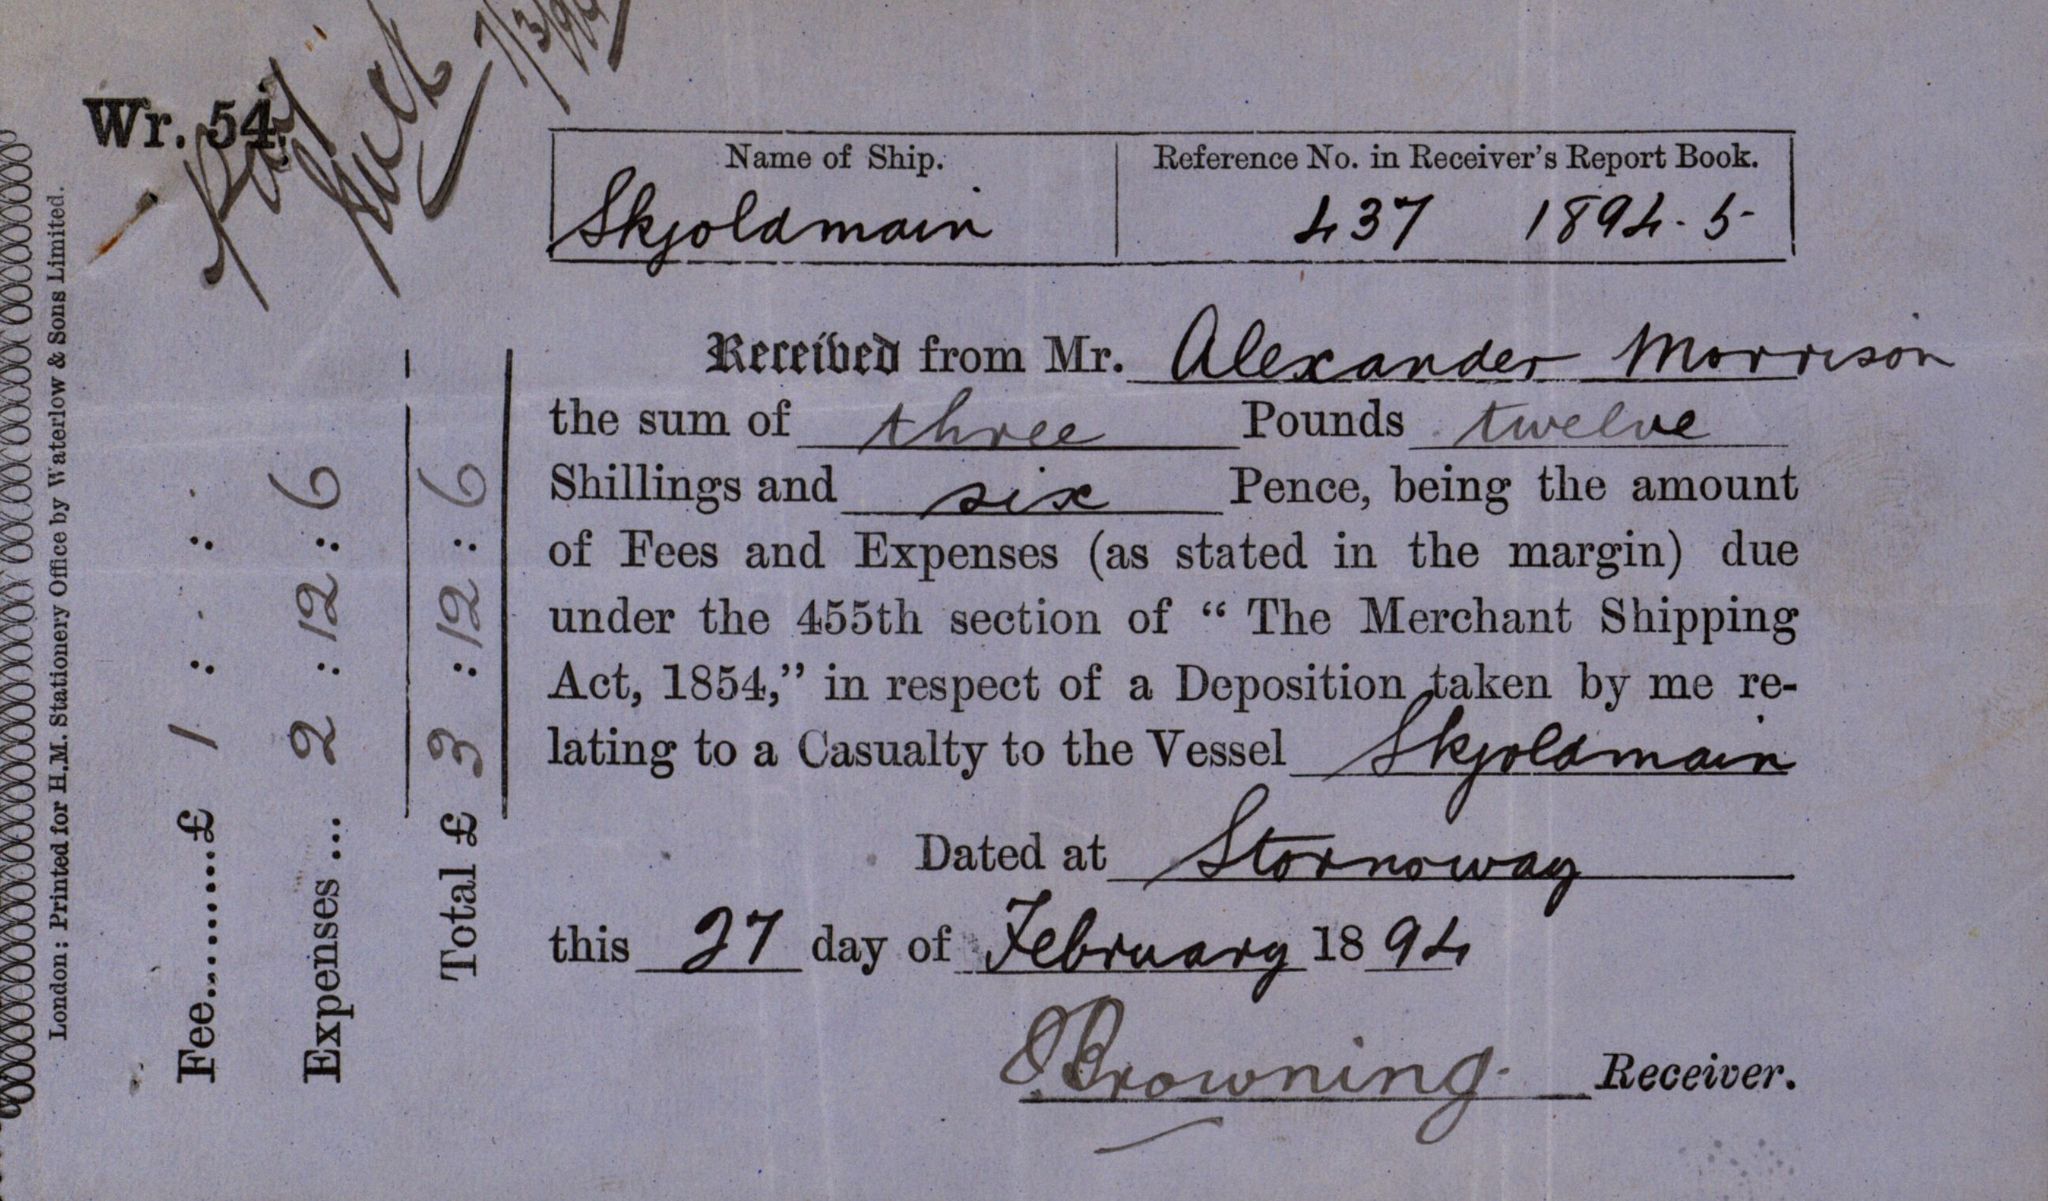 Wr. 54.
Pay
7/3/94
Name of Ship.
Skjoldmain
Reference No. in Receiver's Report Book.
437 1894-5-
Received from Mr. Alexander Morrison
the sum of three Pounds twelve
Shillings and six Pence, being the amount
of Fees and Expenses (as stated in the margin) due
under the 455th section of "The Merchant Shipping
Act, 1854," in respect of a Deposition taken by me re-
lating to a Casualty to the Vessel Skjoldmain
Dated at Stornoway
this 27 day of February 1894
Browning. Receiver.
Fee.........£ 1 : . : .
Expenses ... 2 : 12 : 6
Total £ 3 : 12 : 6
London: Printed for H.M. Stationery Office by Waterlow & Sons Limited.